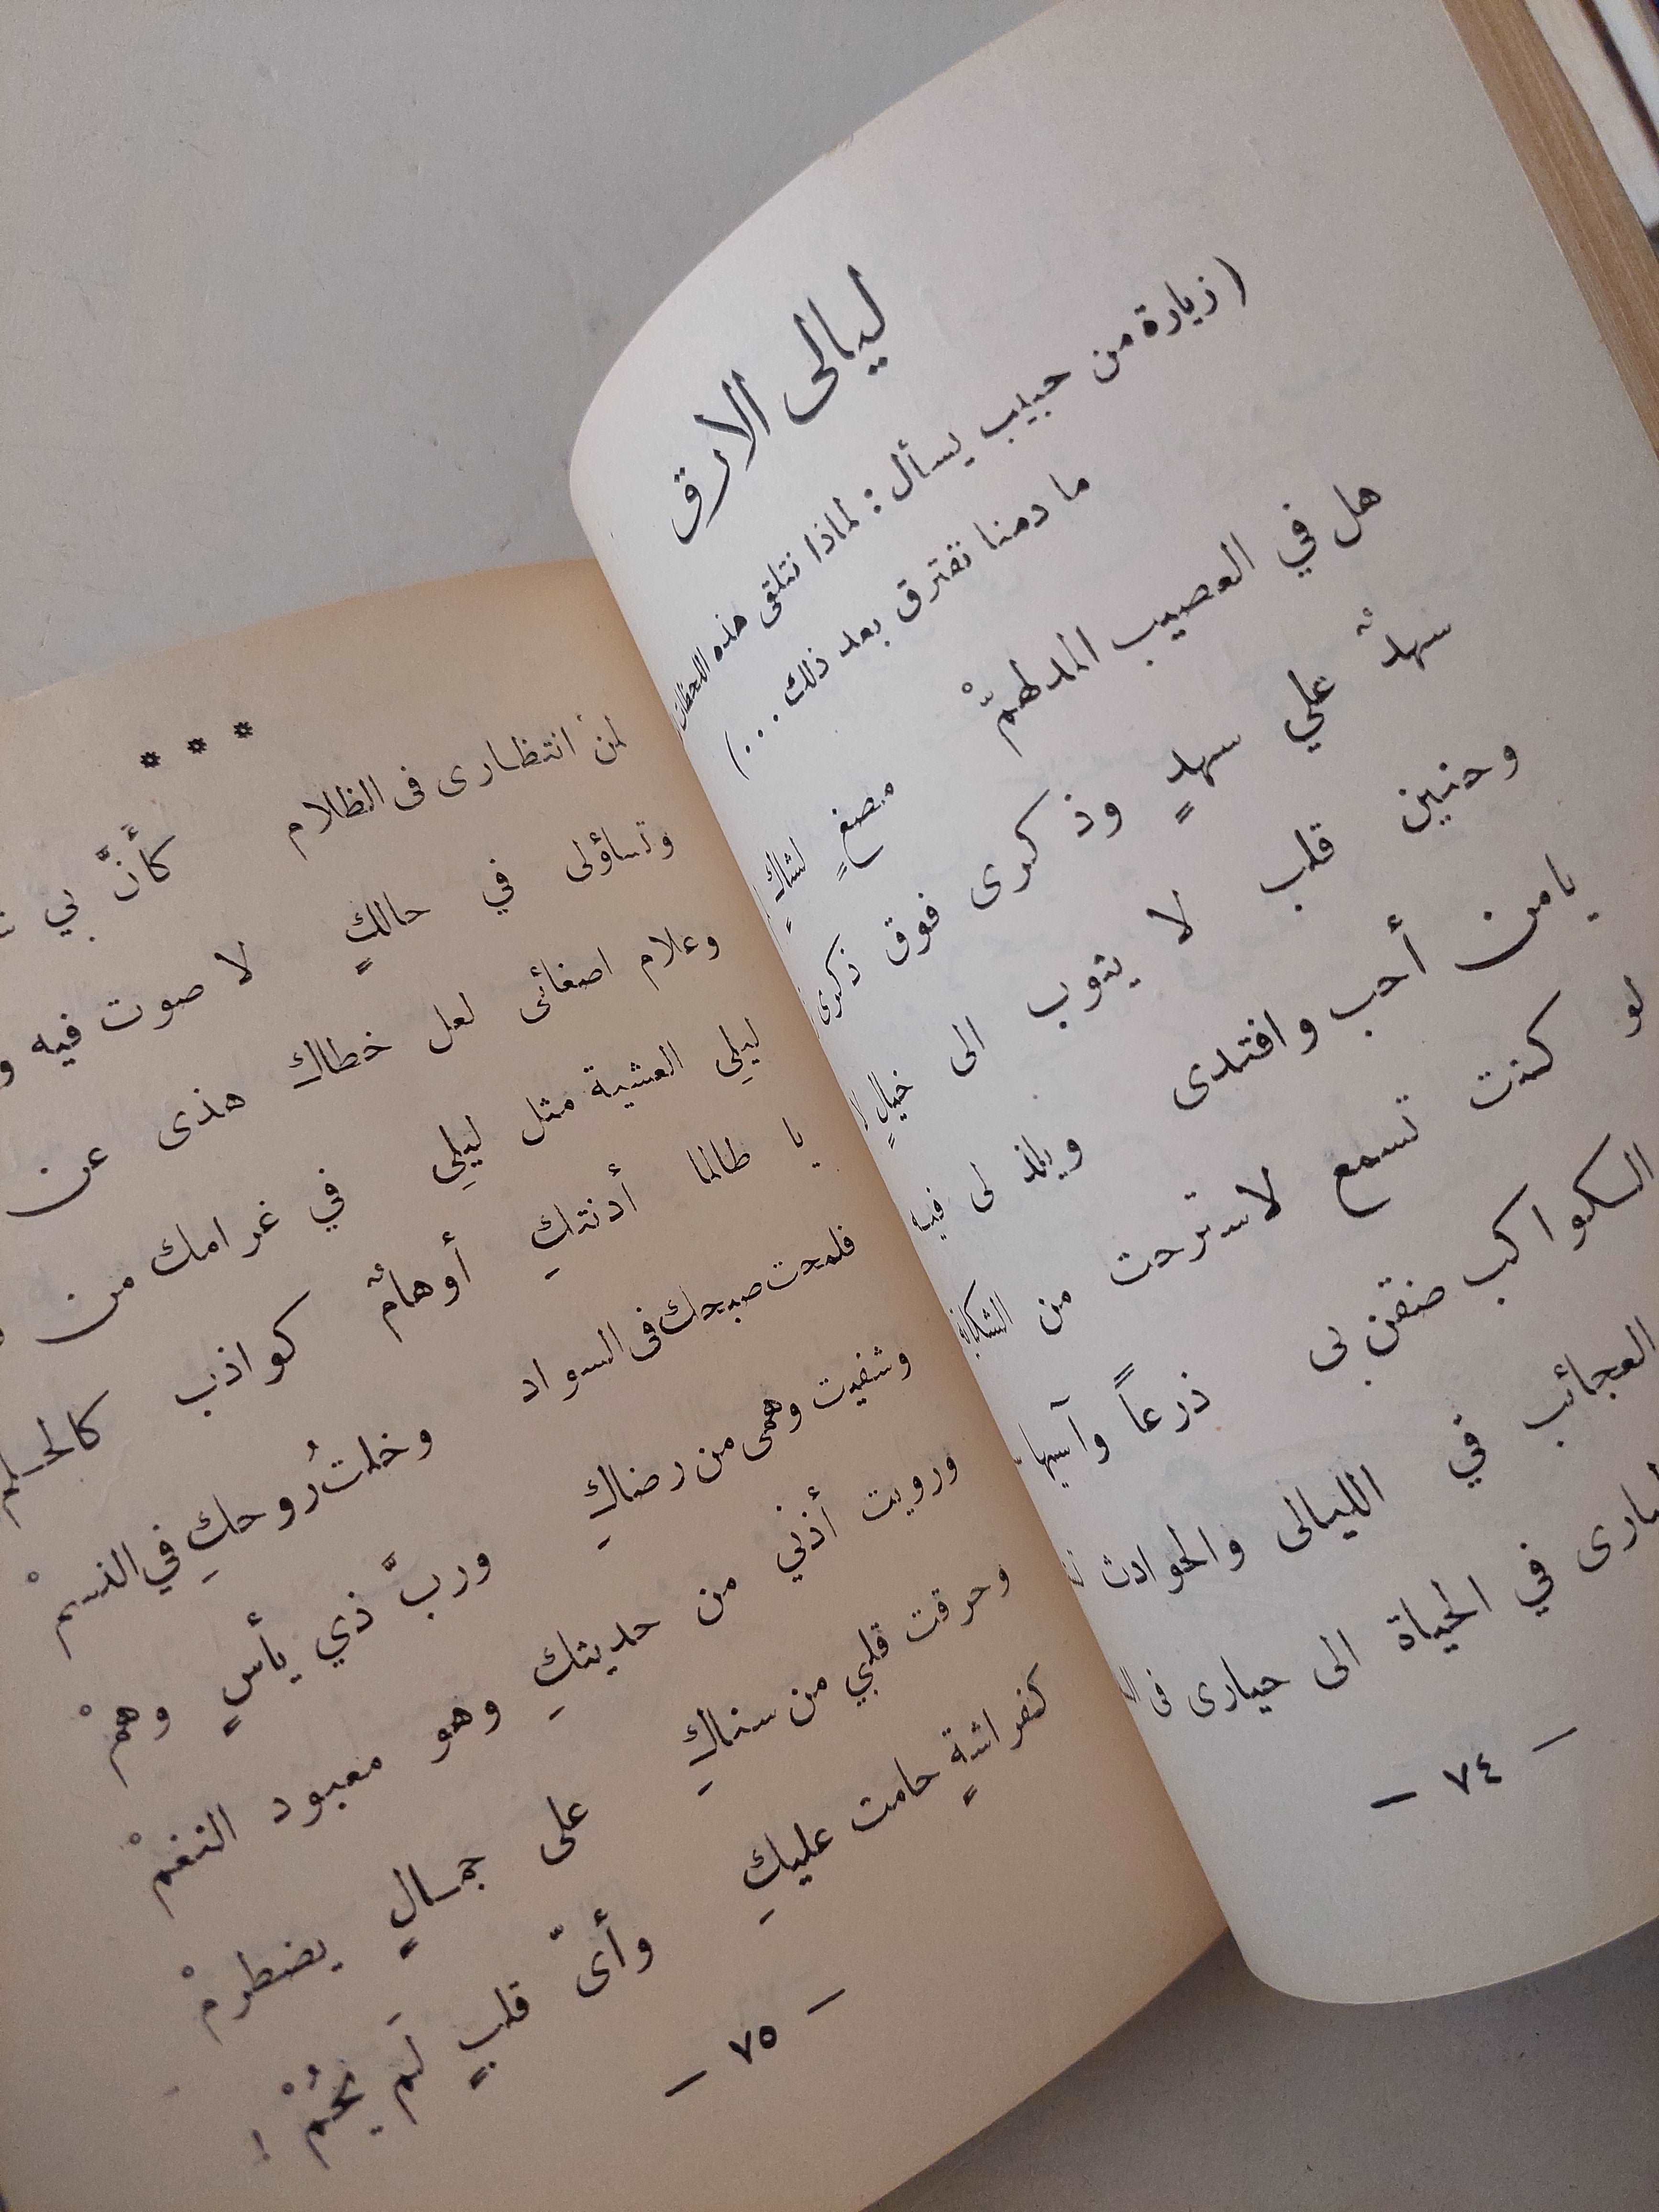 ليالى الارق
( زيارة من حبيب يسأل : لماذا نتلقى هذه اللحظات
ما دمنا نفترق بعد ذلك . . . )
هل في العصيب المدلهمّْ مصغٍ لشاكٍ
سهدٌ علي سهدٍ وذكرى فوق ذكرى
وحنين قلب لا يتوب الى خيالٍ
يامن أحب وافتدى ويلذ لى فيه
لو كنت تسمع لاسترحت من الشكاية
الكواكب ضقن بى ذرعاً وآسيها
العجائب في الليالى والحوادث
في الحياة الى حيارى فى
— ٧٤ —
* * *
لمن انتظارى فى الظلام كأنَّ بي
وتساؤلى في حالكٍ لا صوت فيه
وعلام اصغائى لعل خطاكِ هذى عن
ليلِي العشية مثل ليلِي في غرامك من
يا طالما أدنتكِ أوهامٌ كواذب كالحلم
فلمحت صبحك فى السواد وخلت رُوحكِ في النسمْ
وشفيت وهمى من رضاكِ وربَّ ذي يأسٍ وهمْ
ورويت أذني من حديثكِ وهو معبود النغمْ
وحرقت قلبي من سناكِ على جمالٍ يضطرمْ
كفراشةٍ حامت عليكِ وأىّ قلبٍ لَم يحُمْ !
— ٧٥ —